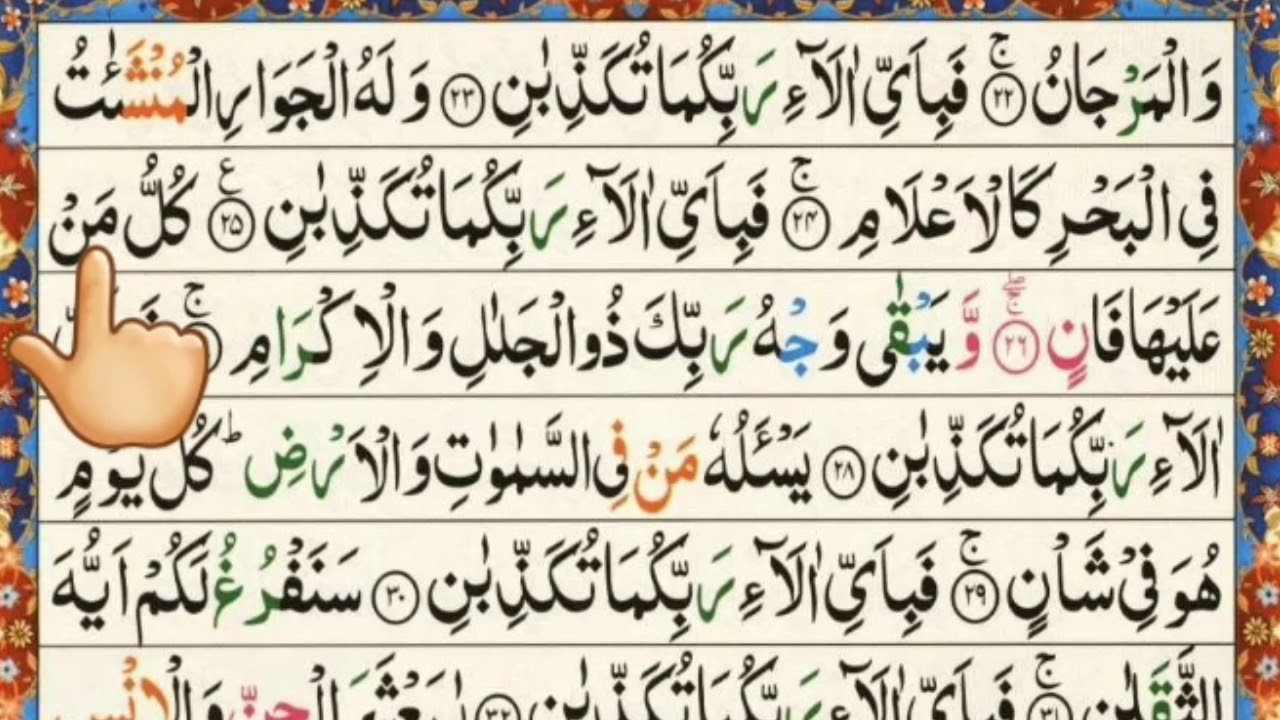 وَ الْمَرْجَانُ ۚ﴿۲۲﴾ فَبِاَیِّ اٰلَآءِ رَبِّكُمَا تُكَذِّبٰنِ ﴿۲۳﴾ وَ لَهُ الْجَوَارِ الْمُنْشَـٰٔتُ
فِی الْبَحْرِ كَالْاَعْلَامِ ۚ﴿۲۴﴾ فَبِاَیِّ اٰلَآءِ رَبِّكُمَا تُكَذِّبٰنِ ﴿۲۵﴾ ع كُلُّ مَنْ
عَلَیْهَا فَانٍ ﴿۲۶﴾ ۖۚ وَّ یَبْقٰی وَجْهُ رَبِّكَ ذُو الْجَلٰلِ وَ الْاِكْرَامِ ۚ
اٰلَآءِ رَبِّكُمَا تُكَذِّبٰنِ ﴿۲۸﴾ یَسْـَٔلُهٗ مَنْ فِی السَّمٰوٰتِ وَ الْاَرْضِ ؕ كُلَّ یَوْمٍ
هُوَ فِیْ شَاْنٍ ۚ﴿۲۹﴾ فَبِاَیِّ اٰلَآءِ رَبِّكُمَا تُكَذِّبٰنِ ﴿۳۰﴾ سَنَفْرُغُ لَكُمْ اَیُّهَ
الثَّقَلٰنِ ۚ﴿۳۱﴾ فَبِاَیِّ اٰلَآءِ رَبِّكُمَا تُكَذِّبٰنِ ﴿۳۲﴾ یٰمَعْشَرَ الْجِنِّ وَ الْاِنْسِ